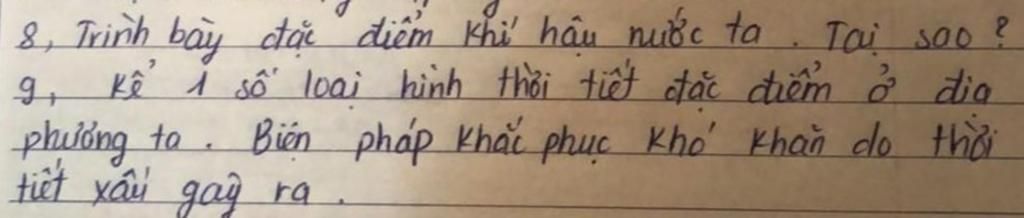 8, Trình bày đặc điểm khí hậu nước ta. Tại sao?
9, Kể 1 số loại hình thời tiết đặc điểm ở địa
phương ta. Biện pháp khắc phục khó khăn do thời
tiết xấu gây ra.